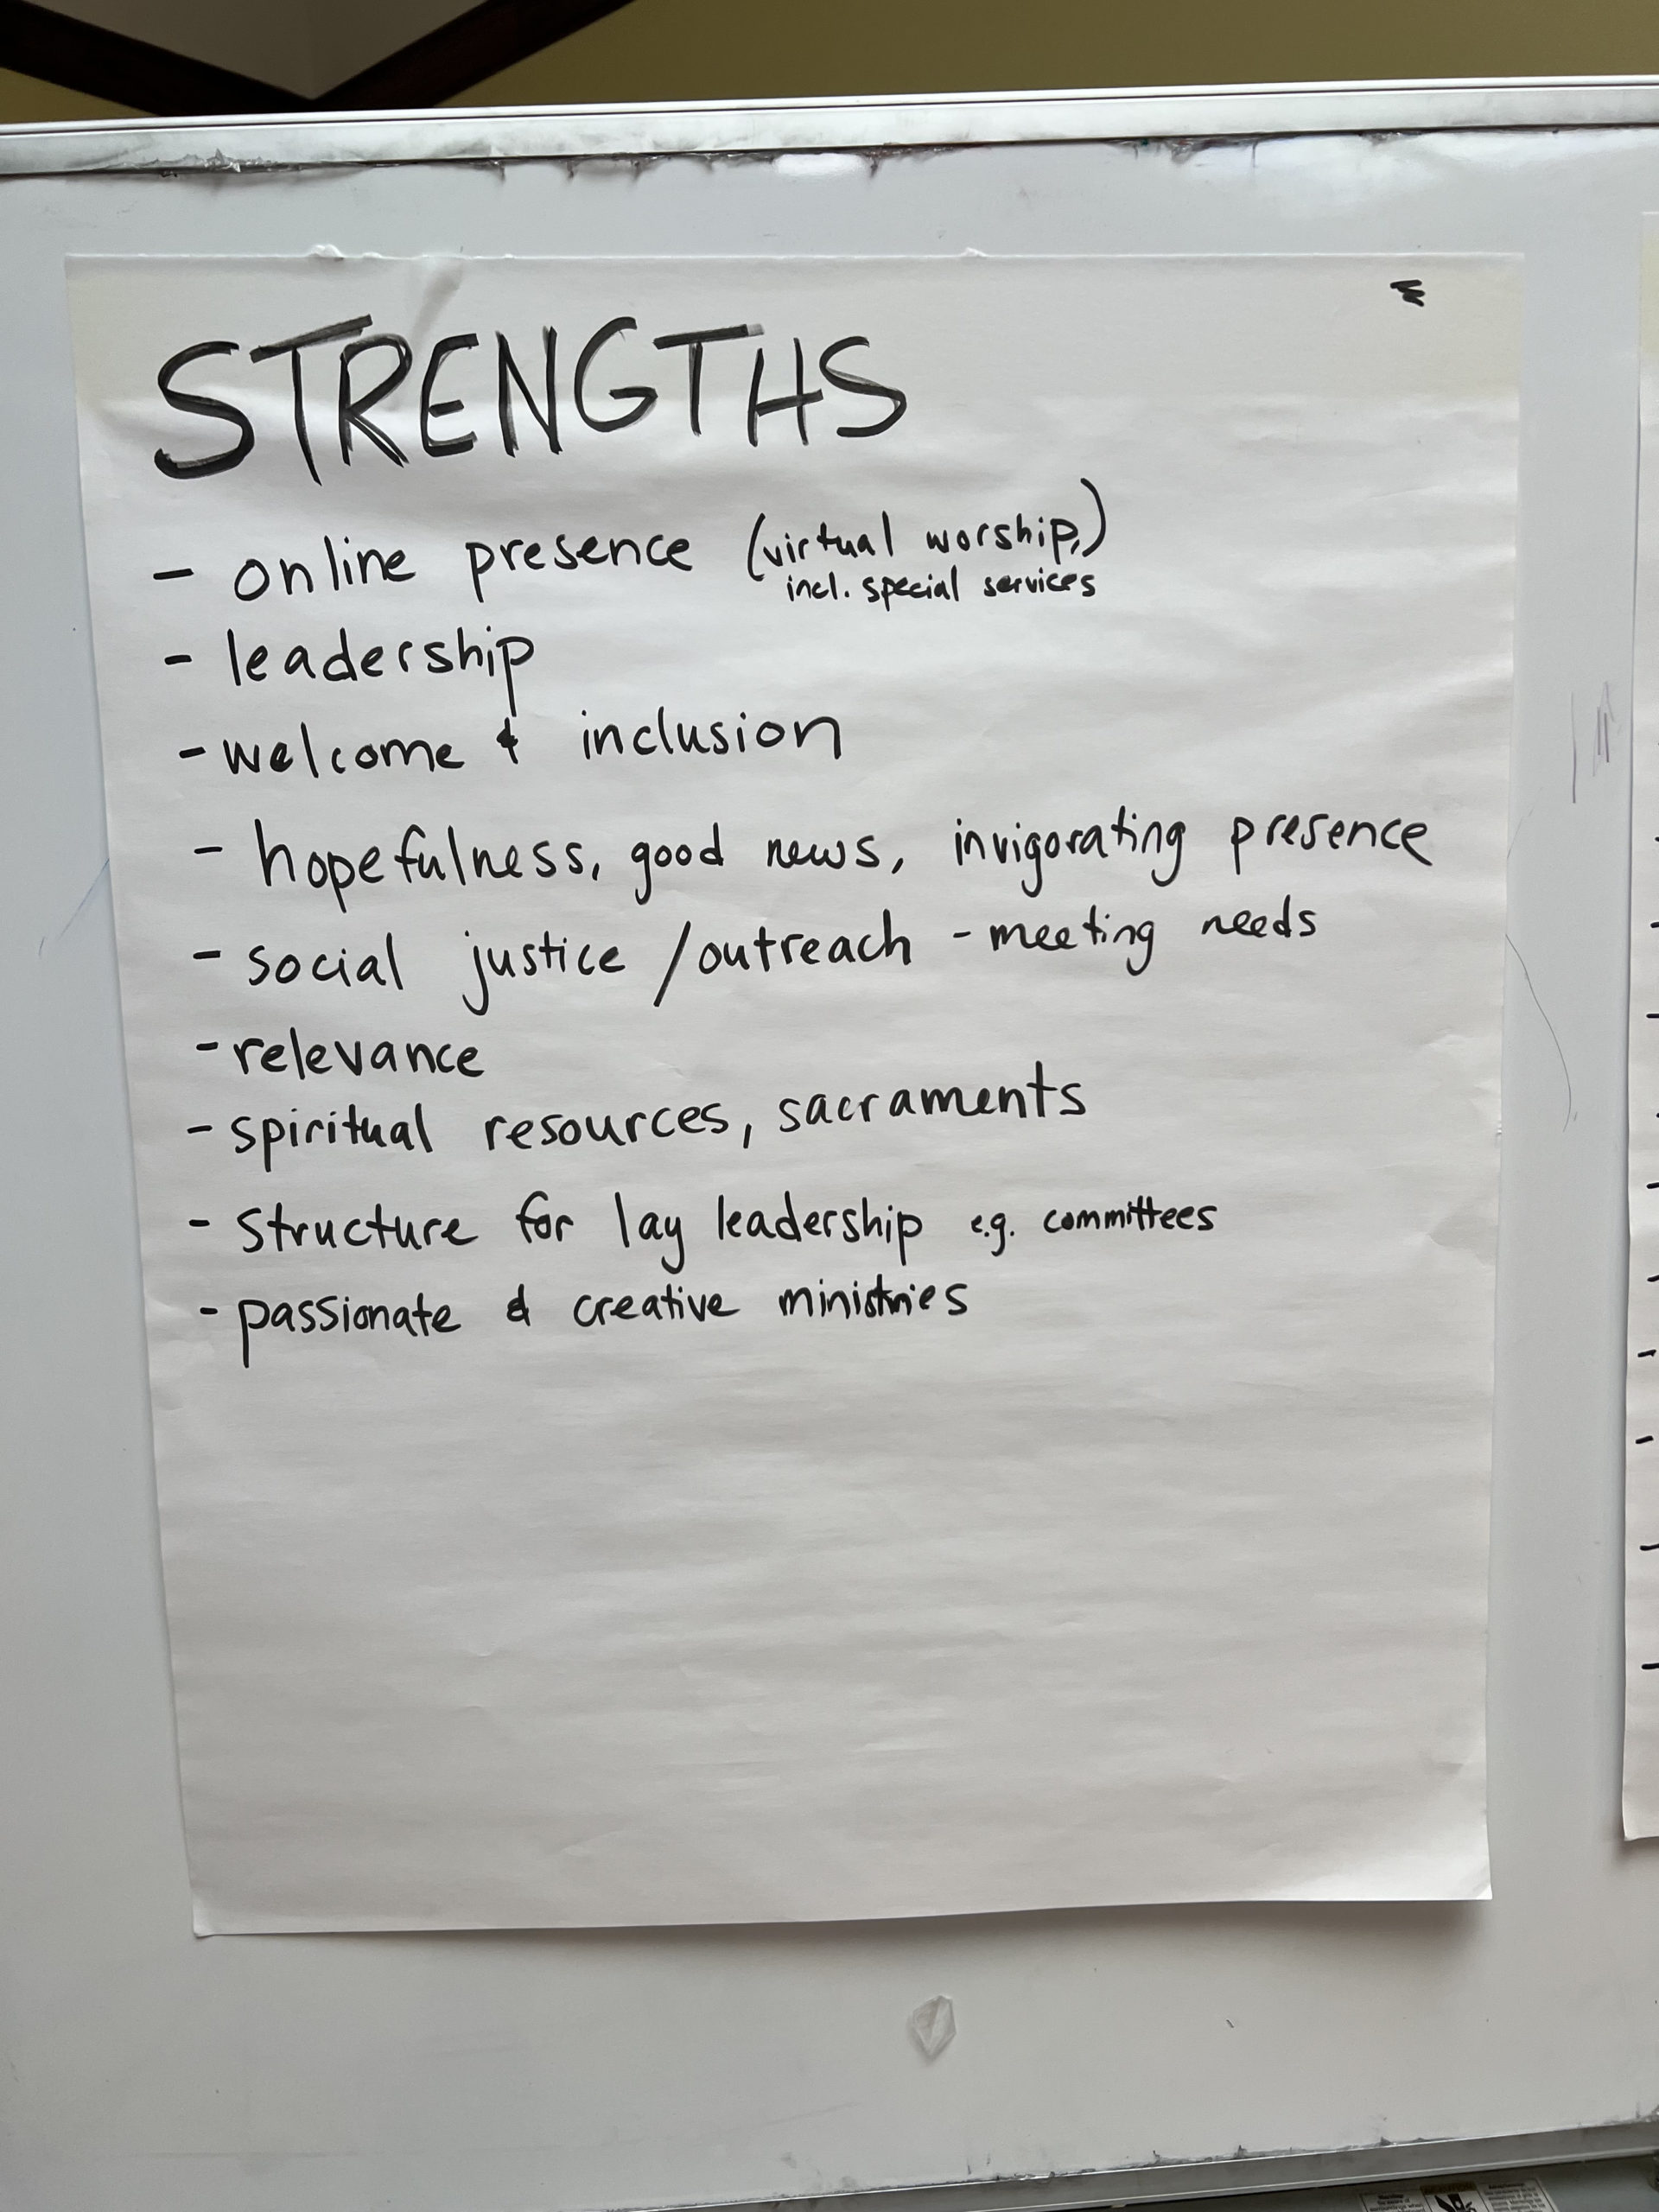 STRENGTHS
- online presence (virtual worship,)
incl. special services
- leadership
- welcome & inclusion
- hopefulness, good news, invigorating presence
- social justice /outreach - meeting needs
- relevance
- spiritual resources, sacraments
- structure for lay leadership e.g. committees
- passionate & creative ministries